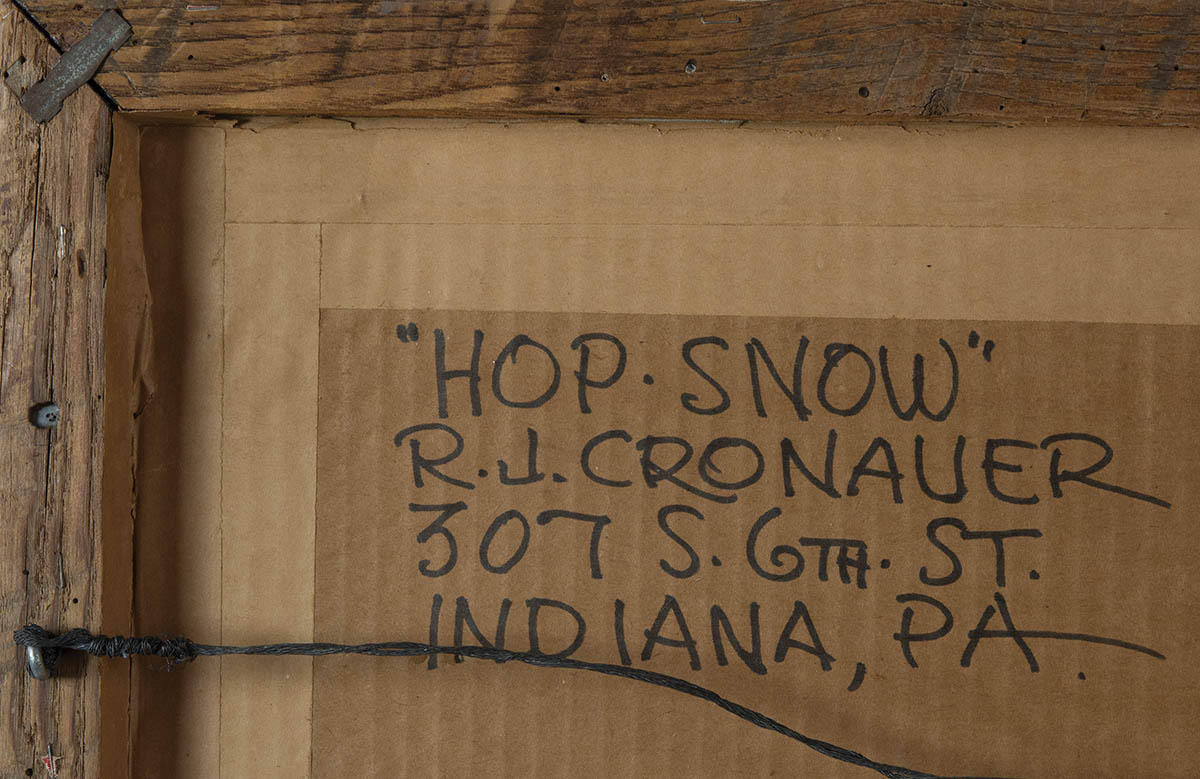 "HOP. SNOW"
R.J. CRONAUER
307 S. 6TH. ST.
INDIANA, PA.